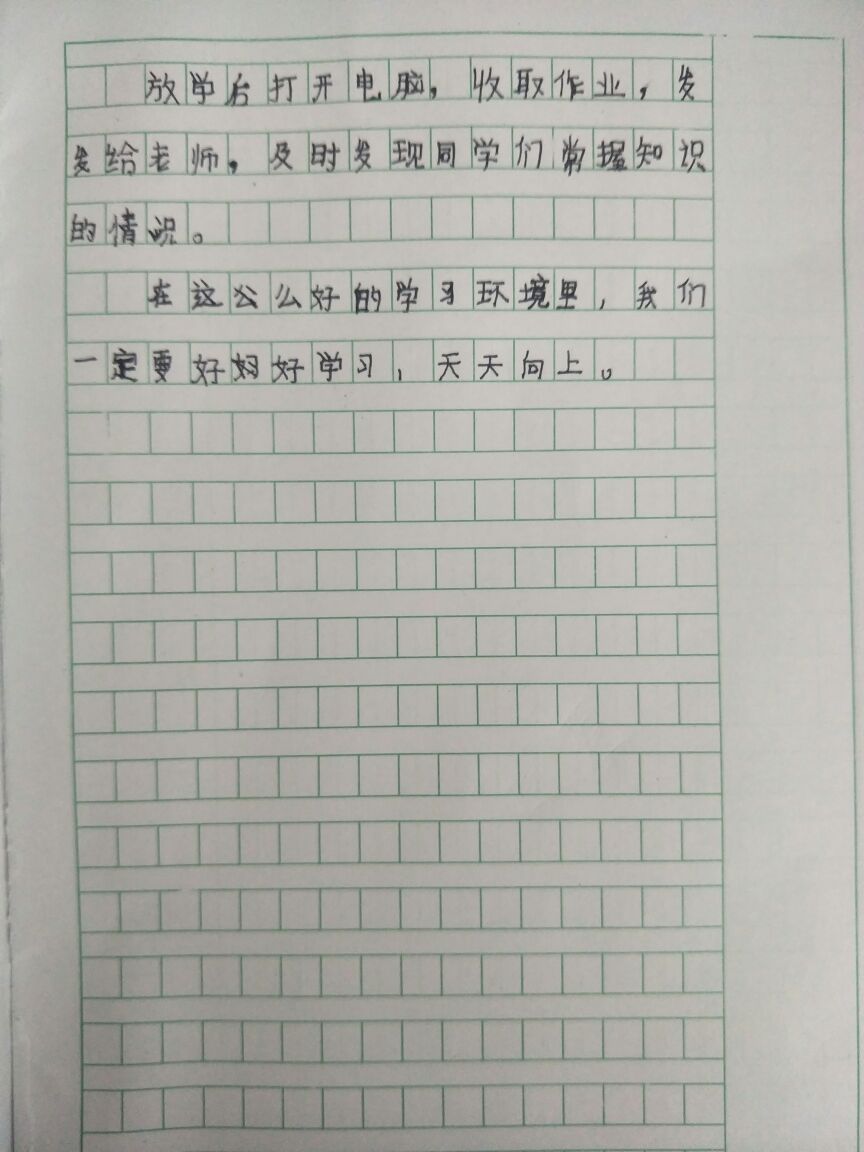 放学后打开电脑，收取作业，发
发给老师，及时发现同学们掌握知识
的情况。
在这公么好的学习环境里，我们
一定要好好好学习，天天向上。